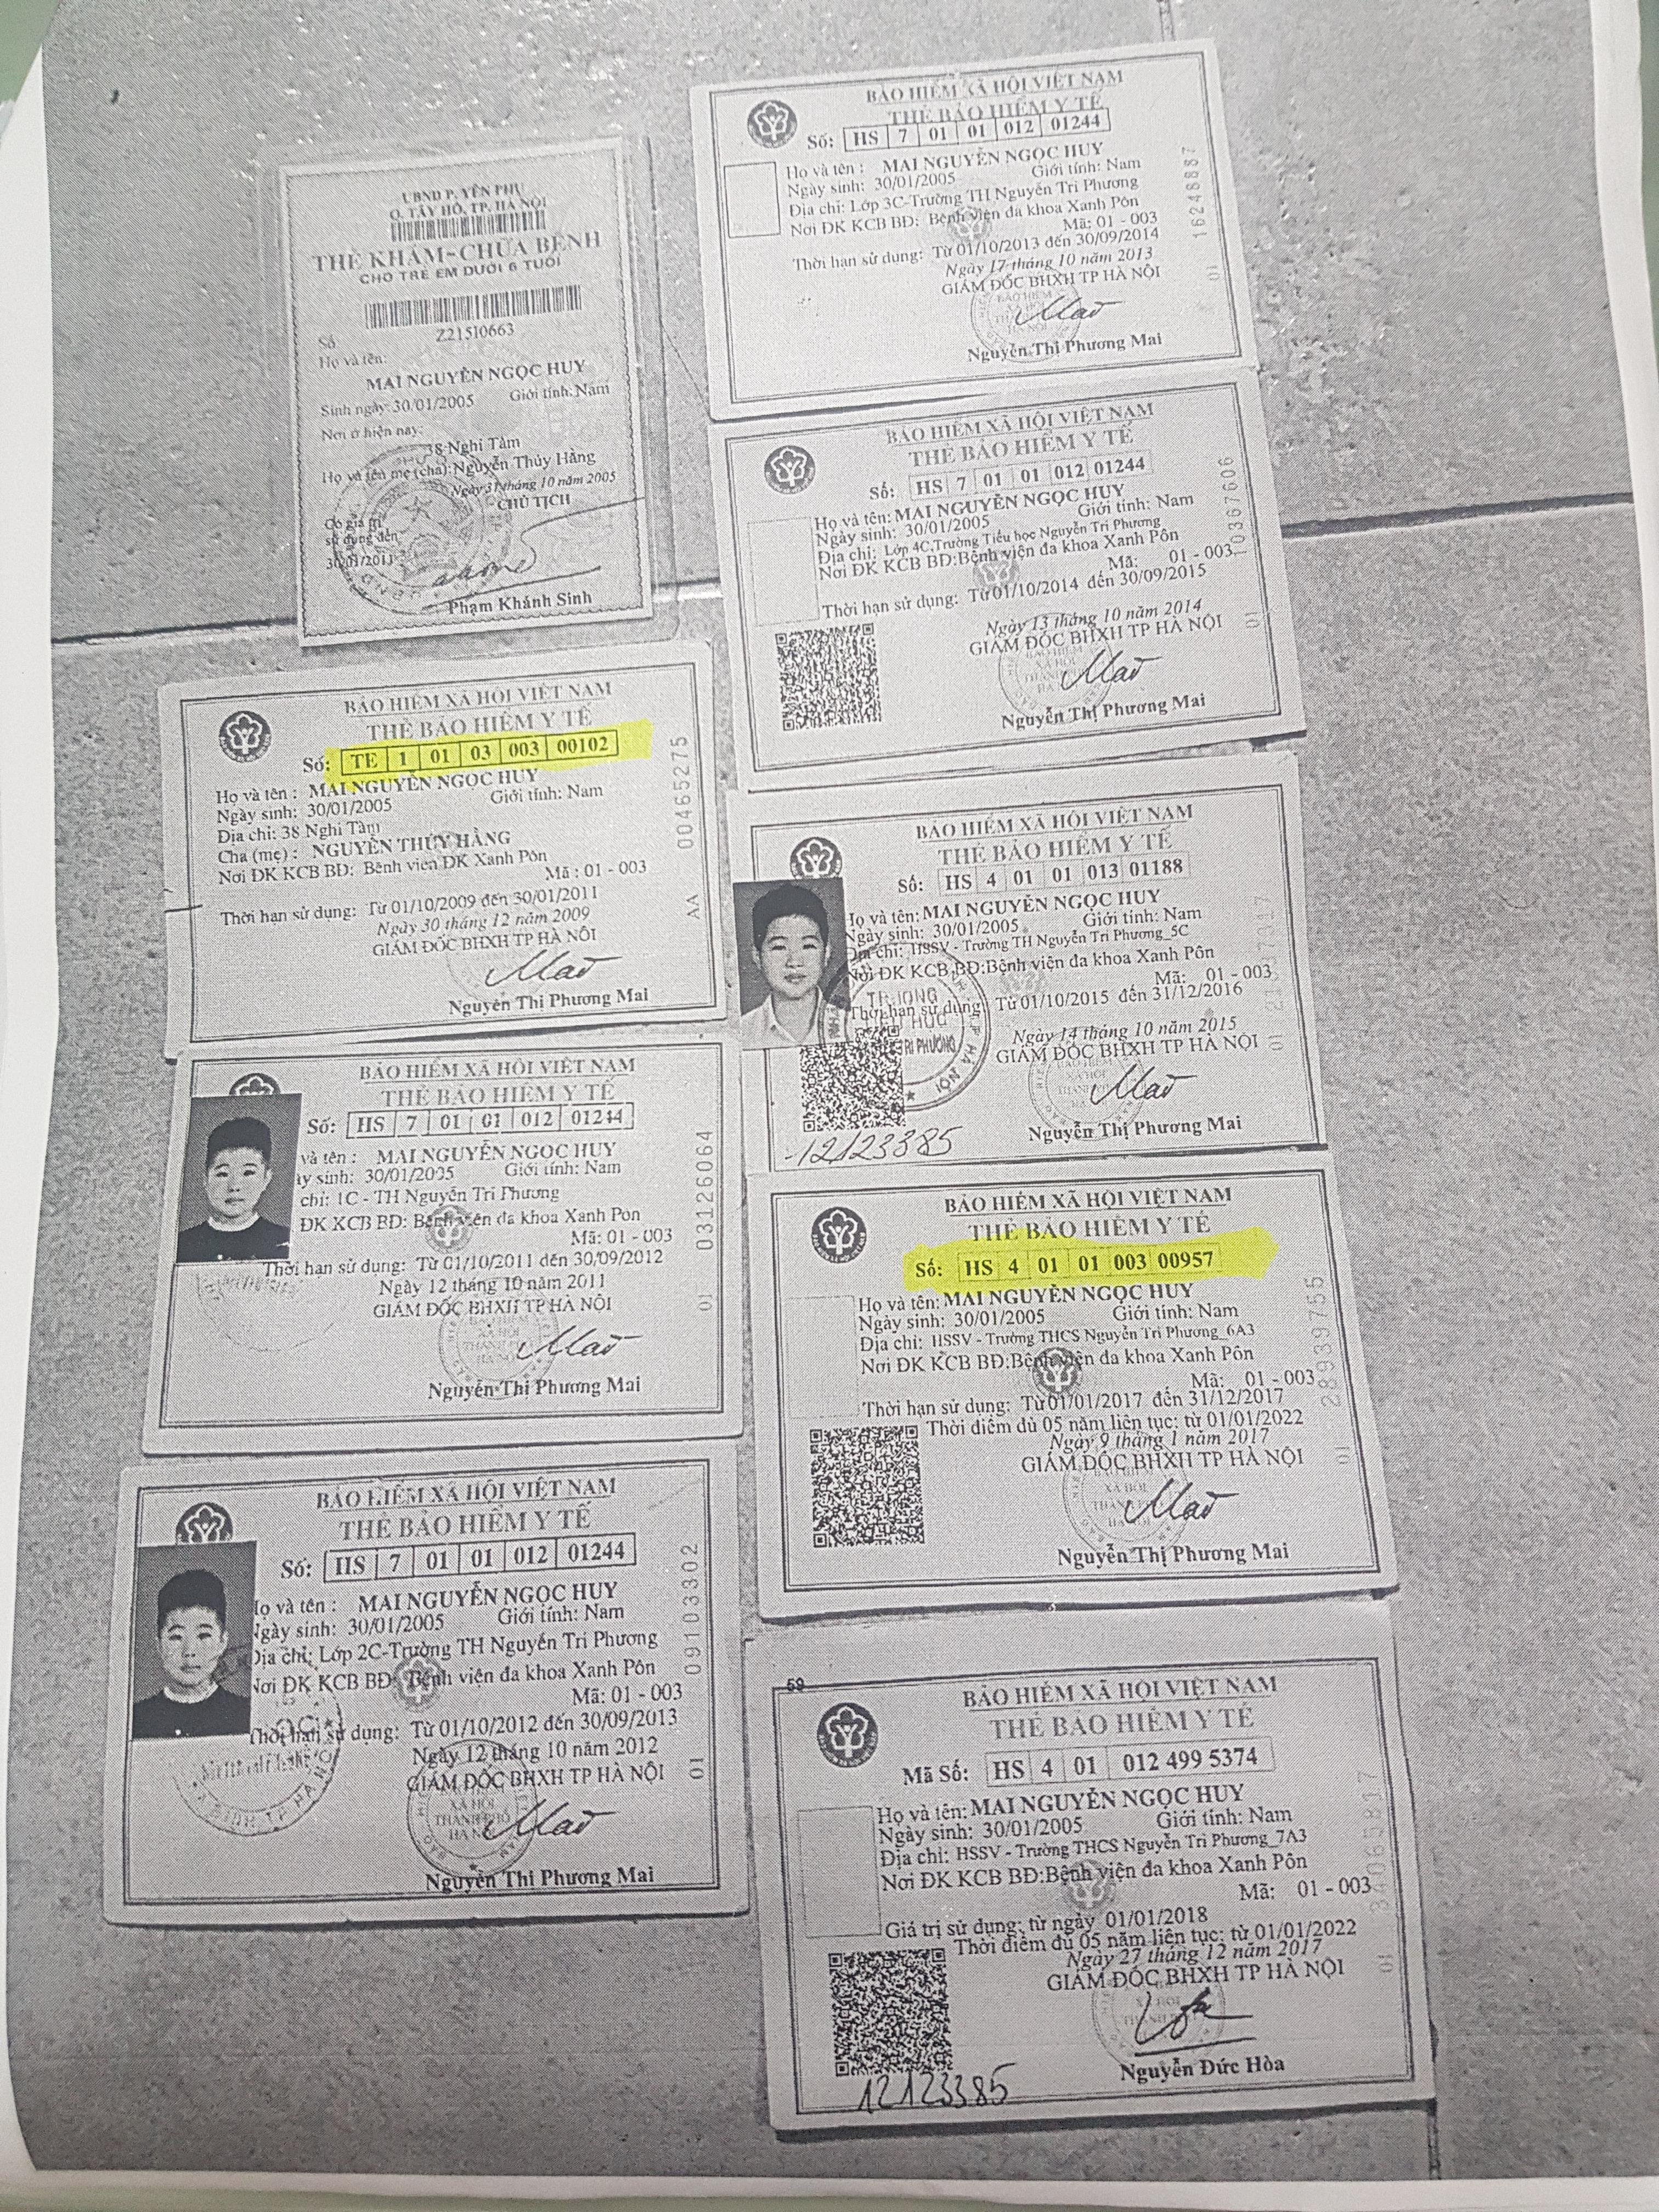 UBND P. YÊN PHỤ
Q. TÂY HỒ, TP. HÀ NỘI
THẺ KHÁM-CHỮA BỆNH
CHO TRẺ EM DƯỚI 6 TUỔI
Số Z21510663
Họ và tên:
MAI NGUYỄN NGỌC HUY
Sinh ngày: 30/01/2005 Giới tính: Nam
Nơi ở hiện nay:
38 Nghi Tàm
Họ và tên mẹ (cha): Nguyễn Thúy Hằng
Ngày 31 tháng 10 năm 2005
CHỦ TỊCH
Có giá trị
sử dụng đến
30/01/2011
Phạm Khánh Sinh
BẢO HIỂM XÃ HỘI VIỆT NAM
THẺ BẢO HIỂM Y TẾ
Số: TE 1 01 03 003 00102
Họ và tên : MAI NGUYỄN NGỌC HUY
Ngày sinh: 30/01/2005 Giới tính: Nam
Địa chỉ: 38 Nghi Tàm
Cha (mẹ) : NGUYỄN THÚY HẰNG
Nơi ĐK KCB BĐ: Bệnh viện ĐK Xanh Pôn
Mã : 01 - 003
Thời hạn sử dụng: Từ 01/10/2009 đến 30/01/2011
Ngày 30 tháng 12 năm 2009
GIÁM ĐỐC BHXH TP HÀ NỘI
Nguyễn Thị Phương Mai
AA 004655275
BẢO HIỂM XÃ HỘI VIỆT NAM
THẺ BẢO HIỂM Y TẾ
Số: HS 7 01 01 012 01244
và tên : MAI NGUYỄN NGỌC HUY
ày sinh: 30/01/2005 Giới tính: Nam
chỉ: 1C - TH Nguyễn Tri Phương
ĐK KCB BĐ: Bệnh viện đa khoa Xanh Pôn
Mã: 01 - 003
Thời hạn sử dụng: Từ 01/10/2011 đến 30/09/2012
Ngày 12 tháng 10 năm 2011
GIÁM ĐỐC BHXH TP HÀ NỘI
Nguyễn Thị Phương Mai
01 03126064
BẢO HIỂM XÃ HỘI VIỆT NAM
THẺ BẢO HIỂM Y TẾ
Số: HS 7 01 01 012 01244
Họ và tên : MAI NGUYỄN NGỌC HUY
Ngày sinh: 30/01/2005 Giới tính: Nam
Địa chỉ: Lớp 2C-Trường TH Nguyễn Tri Phương
Nơi ĐK KCB BĐ: Bệnh viện đa khoa Xanh Pôn
Mã: 01 - 003
Thời hạn sử dụng: Từ 01/10/2012 đến 30/09/2013
Ngày 12 tháng 10 năm 2012
GIÁM ĐỐC BHXH TP HÀ NỘI
Nguyễn Thị Phương Mai
01 09103302
BẢO HIỂM XÃ HỘI VIỆT NAM
THẺ BẢO HIỂM Y TẾ
Số: HS 7 01 01 012 01244
Họ và tên : MAI NGUYỄN NGỌC HUY
Ngày sinh: 30/01/2005 Giới tính: Nam
Địa chỉ: Lớp 3C-Trường TH Nguyễn Tri Phương
Nơi ĐK KCB BĐ: Bệnh viện đa khoa Xanh Pôn
Mã: 01 - 003
Thời hạn sử dụng: Từ 01/10/2013 đến 30/09/2014
Ngày 17 tháng 10 năm 2013
GIÁM ĐỐC BHXH TP HÀ NỘI
Nguyễn Thị Phương Mai
01 16246887
BẢO HIỂM XÃ HỘI VIỆT NAM
THẺ BẢO HIỂM Y TẾ
Số: HS 7 01 01 012 01244
Họ và tên: MAI NGUYỄN NGỌC HUY
Ngày sinh: 30/01/2005 Giới tính: Nam
Địa chỉ: Lớp 4C,Trường Tiểu học Nguyễn Tri Phương
Nơi ĐK KCB BĐ:Bệnh viện đa khoa Xanh Pôn
Mã: 01 - 003
Thời hạn sử dụng: Từ 01/10/2014 đến 30/09/2015
Ngày 13 tháng 10 năm 2014
GIÁM ĐỐC BHXH TP HÀ NỘI
Nguyễn Thị Phương Mai
01
BẢO HIỂM XÃ HỘI VIỆT NAM
THẺ BẢO HIỂM Y TẾ
Số: HS 4 01 01 013 01188
Họ và tên: MAI NGUYỄN NGỌC HUY
Ngày sinh: 30/01/2005 Giới tính: Nam
Địa chỉ: HSSV - Trường TH Nguyễn Tri Phương_5C
Nơi ĐK KCB BĐ:Bệnh viện đa khoa Xanh Pôn
Mã: 01 - 003
Thời hạn sử dụng: Từ 01/10/2015 đến 31/12/2016
Ngày 14 tháng 10 năm 2015
GIÁM ĐỐC BHXH TP HÀ NỘI
Nguyễn Thị Phương Mai
12123385
BẢO HIỂM XÃ HỘI VIỆT NAM
THẺ BẢO HIỂM Y TẾ
Số: HS 4 01 01 003 00957
Họ và tên: MAI NGUYỄN NGỌC HUY
Ngày sinh: 30/01/2005 Giới tính: Nam
Địa chỉ: HSSV - Trường THCS Nguyễn Tri Phương_6A3
Nơi ĐK KCB BĐ:Bệnh viện đa khoa Xanh Pôn
Mã: 01 - 003
Thời hạn sử dụng: Từ 01/01/2017 đến 31/12/2017
Thời điểm đủ 05 năm liên tục: từ 01/01/2022
Ngày 9 tháng 1 năm 2017
GIÁM ĐỐC BHXH TP HÀ NỘI
Nguyễn Thị Phương Mai
01 28939755
59
BẢO HIỂM XÃ HỘI VIỆT NAM
THẺ BẢO HIỂM Y TẾ
Mã Số: HS 4 01 012 499 5374
Họ và tên: MAI NGUYỄN NGỌC HUY
Ngày sinh: 30/01/2005 Giới tính: Nam
Địa chỉ: HSSV - Trường THCS Nguyễn Tri Phương_7A3
Nơi ĐK KCB BĐ:Bệnh viện đa khoa Xanh Pôn
Mã: 01 - 003
Giá trị sử dụng: từ ngày 01/01/2018
Thời điểm đủ 05 năm liên tục: từ 01/01/2022
Ngày 27 tháng 12 năm 2017
GIÁM ĐỐC BHXH TP HÀ NỘI
Nguyễn Đức Hòa
12123385